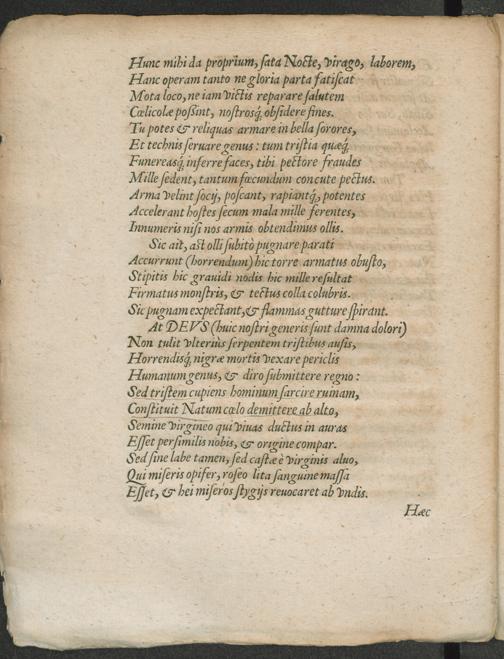 Hunc mihi da proprium, sata Nocte, virago, laborem,
Hanc operam tanto ne gloria parta fatiscat
Mota loco, ne iam victis reparare salutem
Cœlicolæ poßint, nostrosq́, obsidere fines.
Tu potes & reliquas armare in bella sorores,
Et technis seruare genus: tum tristia quæq́,
Funereasq́, inferre faces, tibi pectore fraudes
Mille sedent, tantum fœcundum concute pectus.
Arma velint socij, poscant, rapiantq́, potentes
Accelerant hostes secum mala mille ferentes,
Innumeris nisi nos armis obtendimus ollis.
Sic ait, ast olli subitò pugnare parati
Accurrunt (horrendum) hic torre armatus obusto,
Stipitis hic grauidi nodis hic mille resultat
Firmatus monstris, & tectus colla colubris.
Sic pugnam expectant, & flammas gutture spirant.
At DEVS (huic nostri generis sunt damna dolori)
Non tulit vlteriùs serpentem tristibus ausis,
Horrendisq́, nigræ mortis vexare periclis
Humanum genus, & diro submittere regno:
Sed tristem cupiens hominum sarcire ruinam,
Constituit Natum cœlo demittere ab alto,
Semine virgineo qui viuas ductus in auras
Esset persimilis nobis, & origine compar.
Sed sine labe tamen, sed castæ è virginis aluo,
Qui miseris opifer, roseo lita sanguine massa
Esset, & hei miseros stygijs reuocaret ab vndis.
Hæc